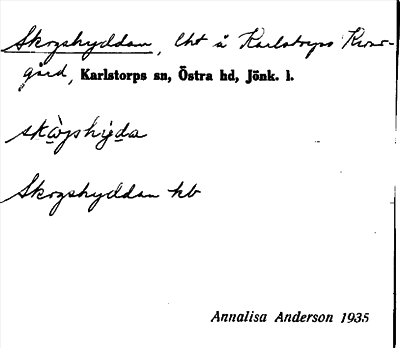 Skogshyddan, lht å Karlstorps Kvarn-
gård, Karlstorps sn, Östra hd, Jönk. l.
Skogshyddan kb
Annalisa Anderson 1935